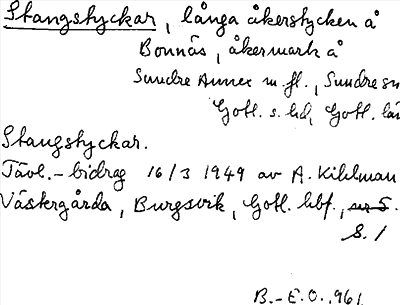 Stangstyckar, långa åkerstycken å
Bonnäs, åkermark å
Sundre Annex m.fl., Sundre sn
Gotl. s. hd, Gotl. län
Stangstyckar.
Tävl.-bidrag 16/3 1949 av A. Kihlman
Västergårda, Burgsvik, Gotl. hbf.,
S. 1
B.-E.O., 961